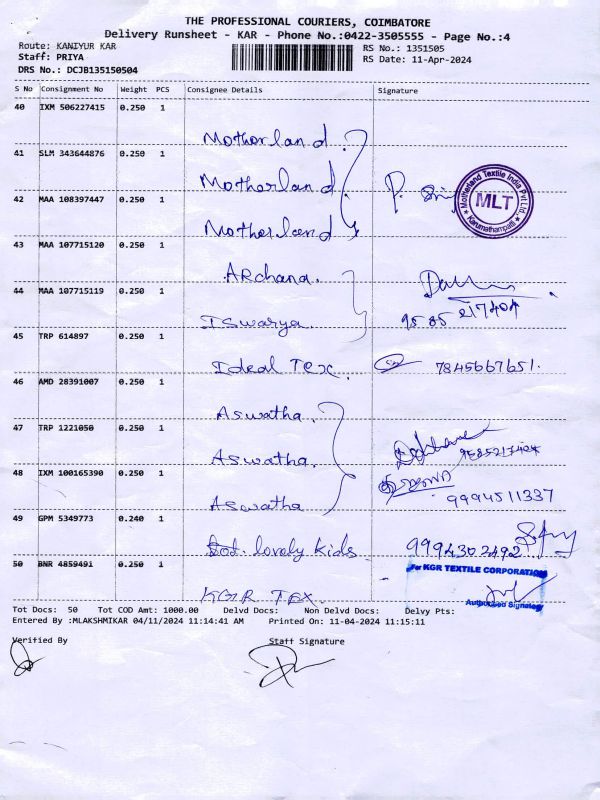 THE PROFESSIONAL COURIERS, COIMBATORE
Delivery Runsheet - KAR - Phone No.:0422-3505555 - Page No.:4
Route: KANIYUR KAR RS No.: 1351505
Staff: PRIYA RS Date: 11-Apr-2024
DRS No.: DCJB135150504
S No Consignment No Weight PCS Consignee Details Signature
40 IXM 506227415 0.250 1
Motherland.
41 SLM 343644876 0.250 1
Motherland.
42 MAA 108397447 0.250 1
Motherland
Motherland Textile India Pvt Ltd.
MLT
Karumathampatti
43 MAA 107715120 0.250 1
ARchana.
44 MAA 107715119 0.250 1
Iswarya. 95 85 217404
45 TRP 614897 0.250 1
Ideal Tex. 7845667651.
46 AMD 28391007 0.250 1
Aswatha.
47 TRP 1221050 0.250 1
Aswatha. 9585217404
48 IXM 100165390 0.250 1
Aswatha 9994511337
49 GPM 5349773 0.240 1
lovely kids 9994302492
50 BNR 4859491 0.250 1
For KGR TEXTILE CORPORATION
KGR TEX.
Authorised Signatory
Tot Docs: 50 Tot COD Amt: 1000.00 Delvd Docs: Non Delvd Docs: Delvy Pts:
Entered By :MLAKSHMIKAR 04/11/2024 11:14:41 AM Printed On: 11-04-2024 11:15:11
Verified By Staff Signature